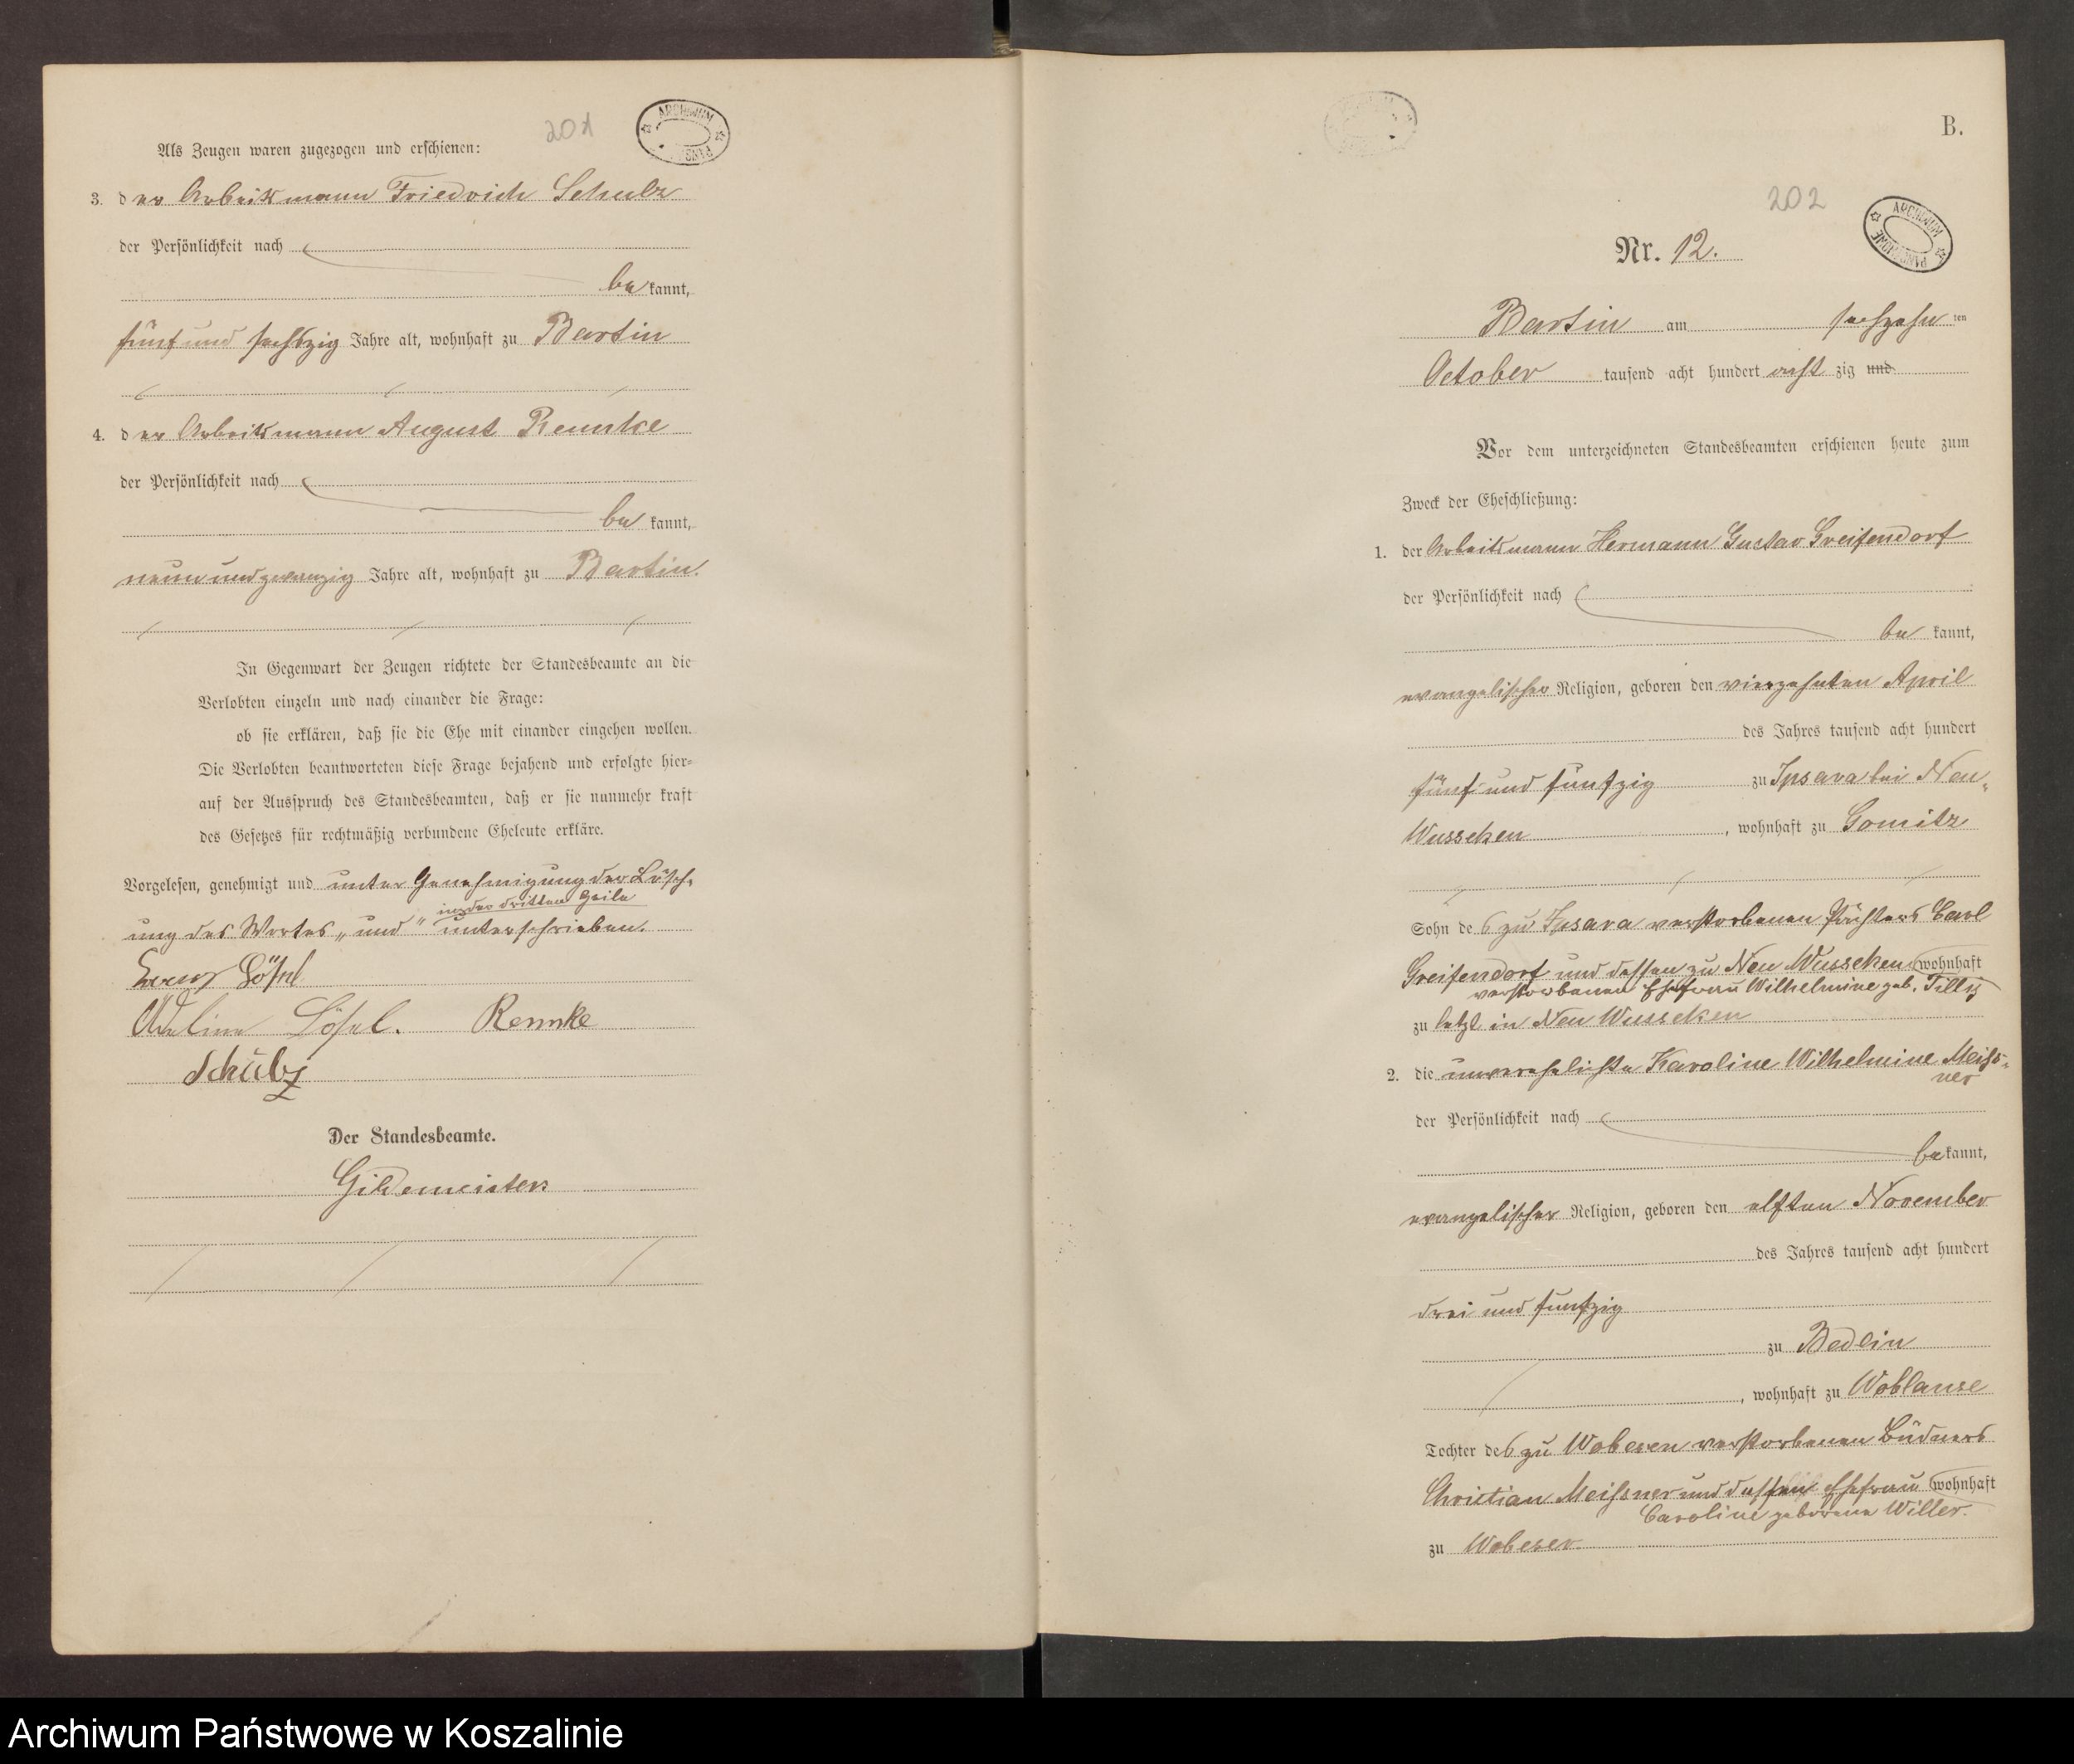 201
ARCHIWUM PAŃSTW
Als Zeugen waren zugezogen und erschienen:
3. der Arbeitsmann Friedrich Schulz
der Persönlichkeit nach
bekannt,
fünf und sechszig Jahre alt, wohnhaft zu Bartin
4. der Arbeitsmann August Rennke
der Persönlichkeit nach
bekannt,
neun und zwanzig Jahre alt, wohnhaft zu Bartin.
In Gegenwart der Zeugen richtete der Standesbeamte an die
Verlobten einzeln und nach einander die Frage:
ob sie erklären, daß sie die Ehe mit einander eingehen wollen.
Die Verlobten beantworteten diese Frage bejahend und erfolgte hier-
auf der Ausspruch des Standesbeamten, daß er sie nunmehr kraft
des Gesetzes für rechtmäßig verbundene Eheleute erkläre.
Vorgelesen, genehmigt und unter Genehmigung der Lösch-
in der dritten Zeile
ung des Wortes „und“ unterschrieben.
Lösel
Adeline Lösel. Rennke
Schulz
Der Standesbeamte.
Gildemeister
B.
202
ARCHIWUM PAŃSTWOWE
Nr. 12.
Bartin am sechzehnten
October tausend acht hundert achtzig und
Vor dem unterzeichneten Standesbeamten erschienen heute zum
Zweck der Eheschließung:
1. der Arbeitsmann Hermann Gustav Greifendorf
der Persönlichkeit nach
bekannt,
evangelischer Religion, geboren den vierzehnten April
des Jahres tausend acht hundert
fünf und fünfzig zu Ipsara bei Neu-
Wusseken, wohnhaft zu Gomitz
Sohn des zu Ipsara verstorbenen Pächters Carl
Greifendorf und dessen zu Neu Wusseken wohnhaft
verstorbenen Ehefrau Wilhelmine geb. Tilly
zu letzt in Neu Wusseken
2. die unverehelichte Karoline Wilhelmine Meiß-
ner
der Persönlichkeit nach
bekannt,
evangelischer Religion, geboren den elften November
des Jahres tausend acht hundert
drei und fünfzig
zu Bedlin
, wohnhaft zu Woblanse
Tochter des zu Wobeser verstorbenen Büdners
Christian Meißner und dessen Ehefrau wohnhaft
Caroline geborene Willer.
zu Wobeser
Archiwum Państwowe w Koszalinie